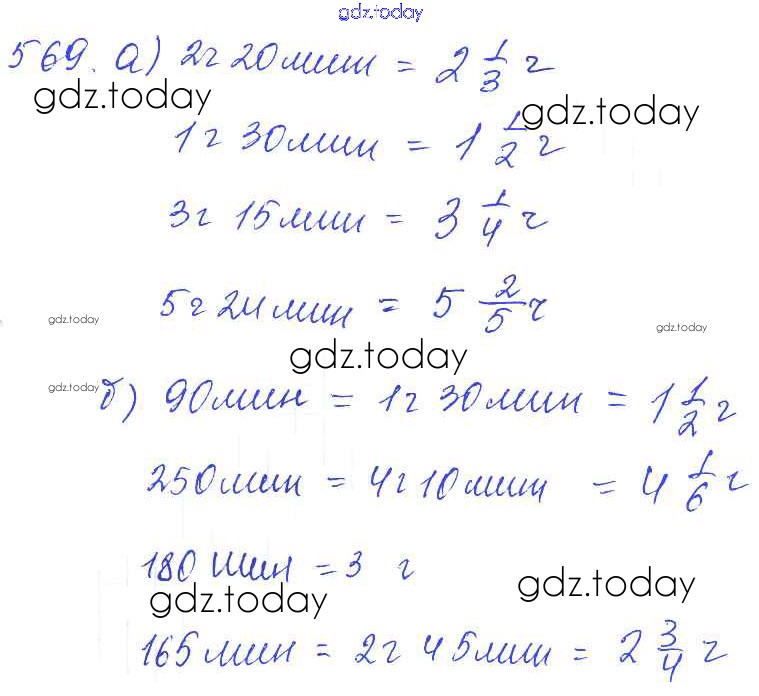 gdz.today
569. а) 2ч 20мин = 2 1/3 ч
gdz.today
gdz.today
1ч 30мин = 1 1/2 ч
3ч 15мин = 3 1/4 ч
5ч 24мин = 5 2/5 ч
gdz.today
gdz.today
gdz.today
gdz.today
б) 90мин = 1ч 30мин = 1 1/2 ч
250мин = 4ч 10мин = 4 1/6 ч
180мин = 3 ч
gdz.today
gdz.today
165мин = 2ч 45мин = 2 3/4 ч